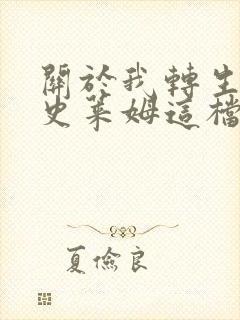 關於我轉生
史萊姆這檔
夏儉良